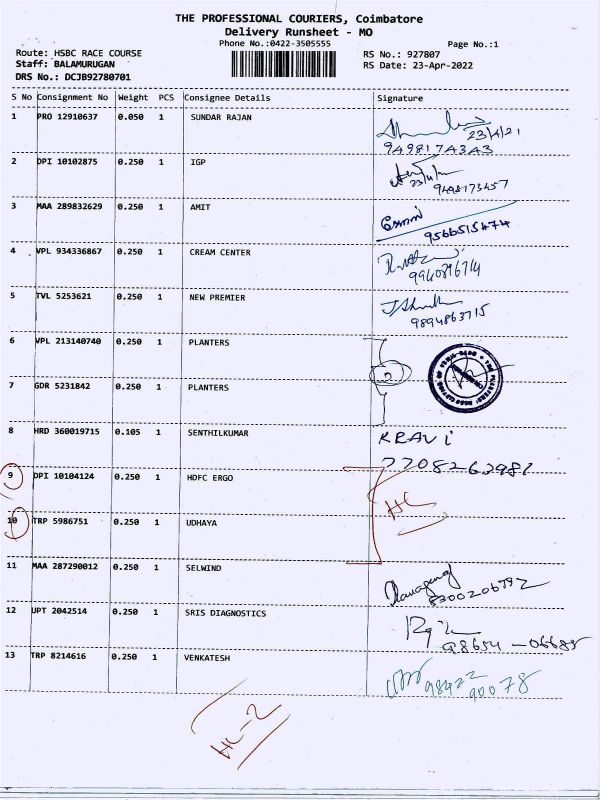 THE PROFESSIONAL COURIERS, Coimbatore
Delivery Runsheet - MO
Phone No.:0422-3505555
Page No.:1
Route: HSBC RACE COURSE
RS No.: 927807
Staff: BALAMURUGAN
RS Date: 23-Apr-2022
DRS No.: DCJB92780701
S No Consignment No Weight PCS Consignee Details Signature
1 PRO 12910637 0.050 1 SUNDAR RAJAN
23/4/21
9498174343
2 DPI 10102875 0.250 1 IGP
9498173457
3 MAA 289832629 0.250 1 AMIT
9566515474
4 VPL 934336867 0.250 1 CREAM CENTER
9940816714
5 TVL 5253621 0.250 1 NEW PREMIER
9894863715
6 VPL 213140740 0.250 1 PLANTERS
2
7 GDR 5231842 0.250 1 PLANTERS
8 HRD 360019715 0.105 1 SENTHILKUMAR KRAVi
7708263981
9 DPI 10104124 0.250 1 HDFC ERGO
HC
10 TRP 5986751 0.250 1 UDHAYA
11 MAA 287290012 0.250 1 SELWIND
8300206792
12 UPT 2042514 0.250 1 SRIS DIAGNOSTICS
98654-06685
13 TRP 8214616 0.250 1 VENKATESH
98422 90078
HC-2